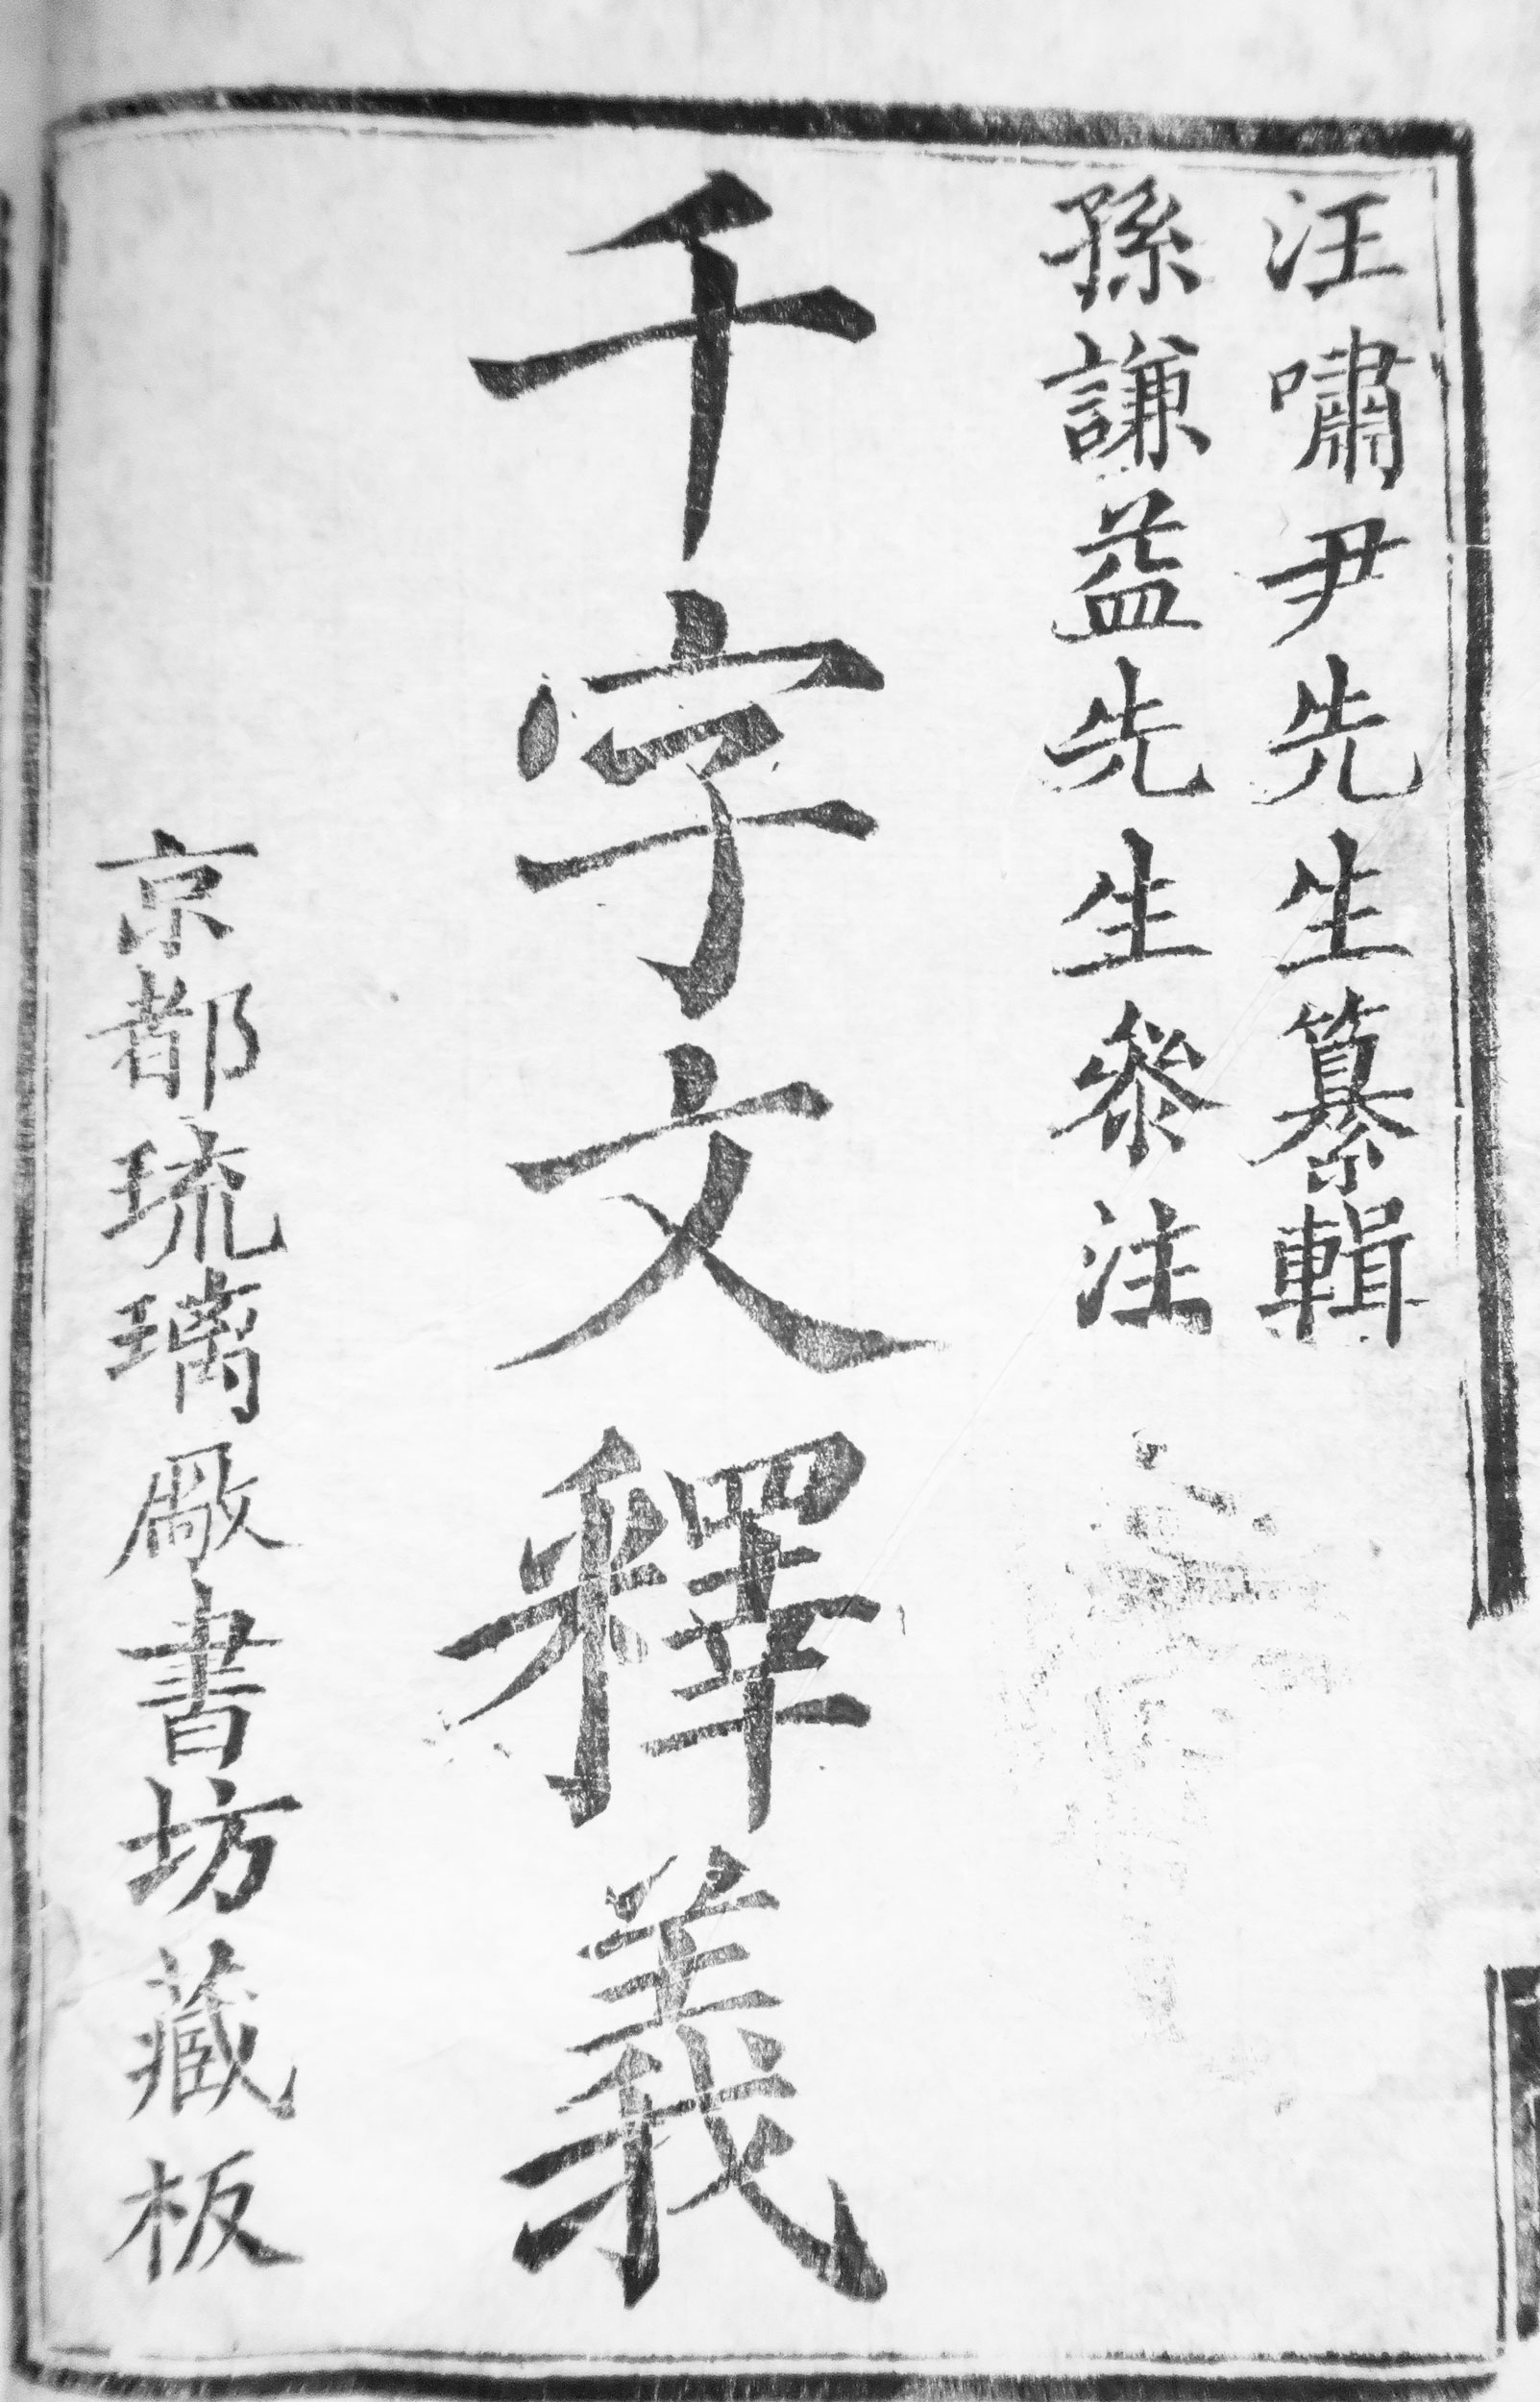 汪嘯尹先生纂輯
孫謙益先生叅注
千字文釋義
京都琉璃厰書坊藏板